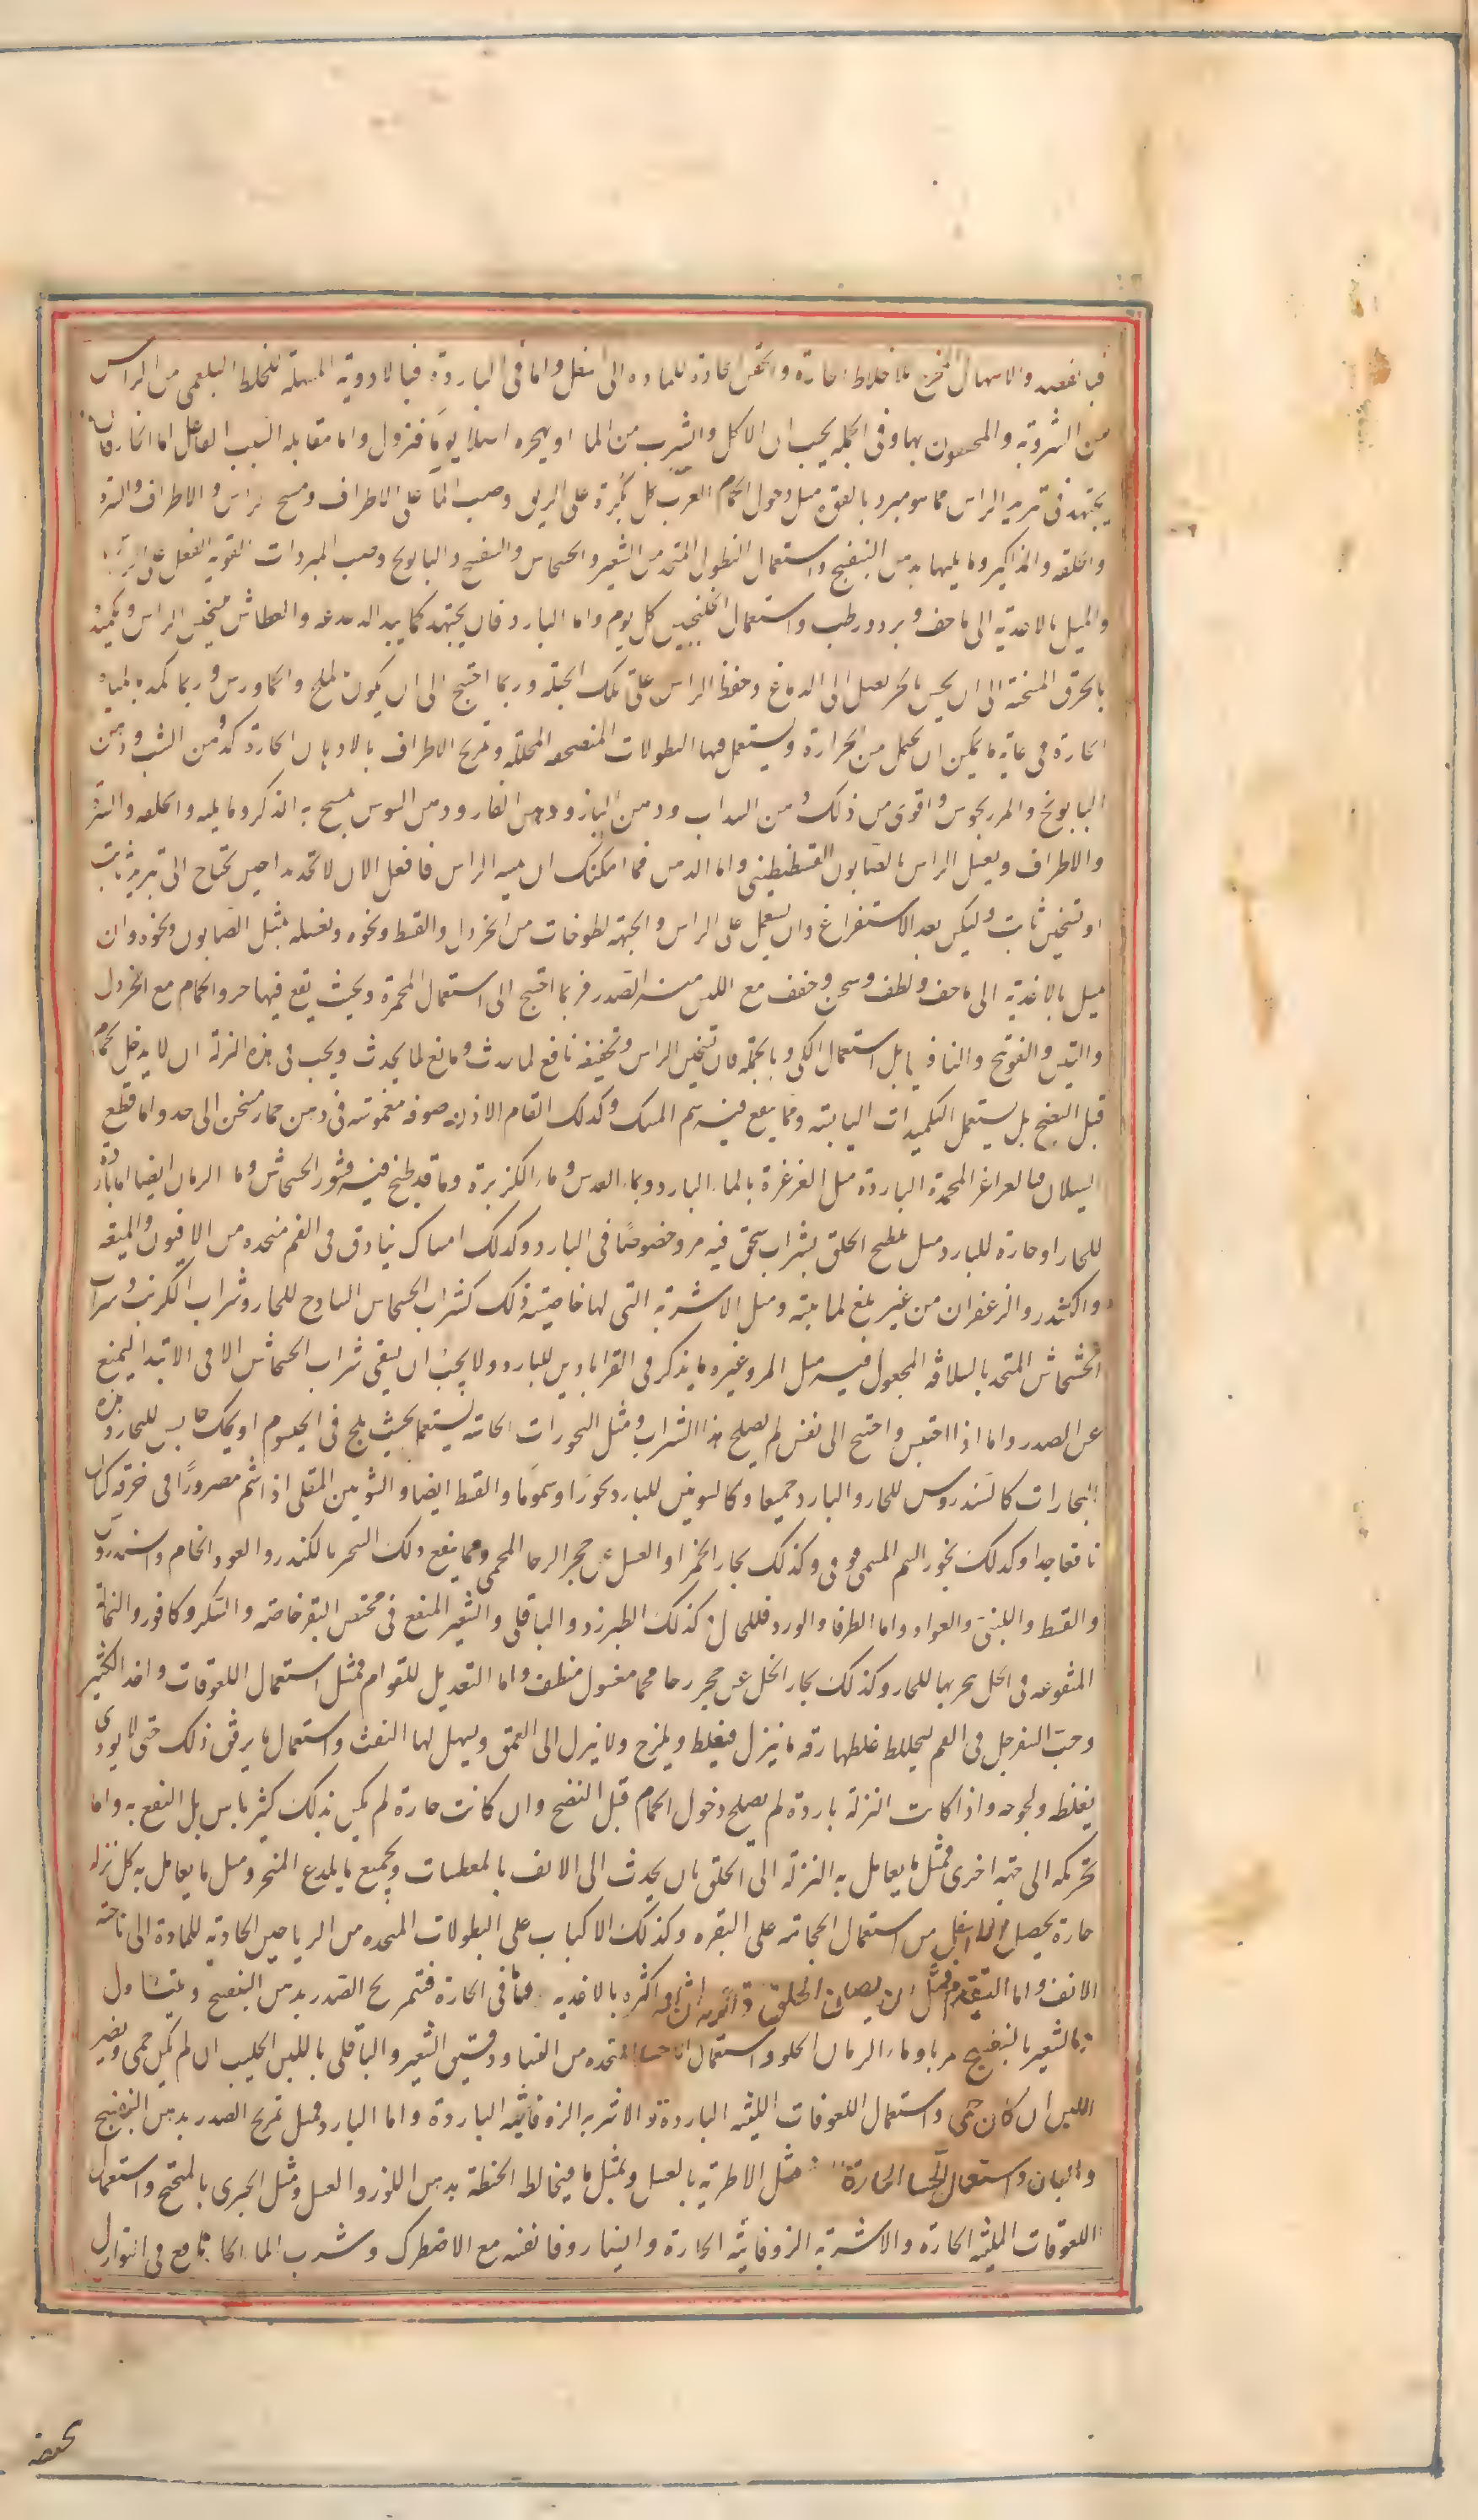 فبالفصد والاسهال المخرج للاخلاط الحارة والحقن الحادة للمادة الى اسفل واما فى الباردة فبالادوية المسهلة للخلط البلغمى من الراس
من المشروبة والمحقون بها وفى الجملة يجب ان الاكل والشرب من الماء او يهجره اصلا يوما فنزول واما مقابله السبب الفاعل اما الحار فان
يجتهد فى تبريد الراس مما هو مبرد بالقوة مثل دخول الحمام العذب كل بكرة على الريق وصب الماء على الاطراف ومسح الراس والاطراف والسرة
والحلقة والمذاكير وما يليهما بدهن البنفسج واستعمال النطول المتخذ من الشعير والخشخاش والبنفسج والبابونج وصب المبردات القوية الفعل على الراس
والميل بالاغذية الى ما خف وبرد ورطب واستعمال الخلنجبين كل يوم واما البارد فان يجتهد كما يبدا الدغدغه والعطاس فيسخن الراس ويكمد
بالخرق المسخنة الى ان يحس بالحر يصل الى الدماغ وحفظ الراس على تلك الجملة وربما احتيج الى ان يكون بالملح والجاورس وربما كمد بالمياه
الحارة فى غاية ما يمكن ان يحمل من الحرارة ويستعمل فيها النطولات المنضجة المحللة وتمريخ الاطراف بالادهان الحارة كدهن الشبت ودهن
البابونج والمرزنجوش واقوى من ذلك دهن السداب ودهن البان ودهن الغار ودهن السوس يمسح به الذكر وما يليه والحلقه والسرة
والاطراف ويغسل الراس بالصابون القسطنطينى واما الدهن فما امكنك ان يمسه الراس فافعل الا ان لا تجد بدا حين تحتاج الى تبريد ثابت
او تسخين ثابت وليكن بعد الاستفراغ وان يستعمل على الراس والجبهة لطوخات من الخردل والقسط ونحوه وتغسله بمثل الصابون ونحوه وان
يميل بالاغذية الى ما خف ولطف وسخن وخفف مع اللين منه الصدر فربما احتيج الى استعمال المحمرة وبحيث يقع فيها خرو الحمام مع الخردل
والتين والفوتنج والثافسيا بل استعمال الكى وبالجملة فان تسخين الراس وتجفيفه نافع لما حدث ومانع لما يحدث ويجب فى هذه النزلة ان لا يدخل الحمام
قبل النضج بل يستعمل التكميدات اليابسة ومما ينفع فيه شم المسك وكذلك القام الاذن صوفة مغموسة فى دهن حار مسخن الى حد واما قطع
السيلان فبالغراغر المجمدة الباردة مثل الغرغرة بالماء البارد وبماء العدس وماء الكزبرة وما قد طبخ فيه قشور الخشخاش وماء الرمان ايضا اما باردة
للحار او حارة للبارد مثل تلطيخ الحلق بشراب سحق فيه مر وخصوصًا فى البارد وكذلك امساك بنادق فى الفم متخذة من الافيون والميعة
والكندر والزعفران من غير بلع لما يبته ومثل الاشربة التى لها خاصيته ذلك كشراب الخشخاش الساذج للحار وشراب الكرنب وشراب
الخشخاش المتخذ بالسلاقة المجعول فيه مثل المر وغيره ما يذكر فى القراباذين للبارد ولا يجب ان يسقى شراب الخشخاش الا فى الابتدا ليمنع
عن الصدر واما اذا احتبس واحتيج الى نفس لم يصلح هذا الشراب ومثل البخورات الحابسة يستعمل بحيث يلج فى الخيشوم او يحك حابس للحار وهذه
البخارات كالسندروس للحار والبارد جميعا وكالشونيز للبارد بخورًا وشمومًا والقسط ايضا والشونيز المقلى اذا شم مصرورًا فى خرقة كتان
نافعا جدا وكذلك بخور السم المسمى فوفى وكذلك بخار الخمر او العسل عن حجر الرحا المحمى ومما ينفع ذلك التبخر بالكندر والعود الخام والسندروس
والقسط واللبنى والعود واما الطرفا والورد فللحار كذلك الطبرزد والباقلى والشعير المنقع فى مخيض البقر خاصة والسكر وكافور والنخالة
المنقوعة فى الخل بخر بها للحار وكذلك بخار الخل عن حجر رحا محما مغسول منظف واما التعديل للقوام فمثل استعمال اللعوقات واخذ الكثير
وحب السفرجل فى الفم ليخالط غلظها رقة ما ينزل فيغلظ ويلزج ولا ينزل الى العمق ويسهل لها النفث واستعمال ما يرقق ذلك حتى لا يوذى
بغلظه ولحوجه واذا كانت النزلة باردة لم يصلح دخول الحمام قبل النضج وان كانت حارة لم يكن بذلك كثير باس بل النفع به واما
تحريكه الى جهة اخرى فمثل ما يعامل به النزلة الى الحلق بان يحدث الى الانف بالمعطسات وبجميع ما يلدع المنخر ومثل ما يعامل به كل نزلة
حارة يحصل الى اسفل من استعمال الحجامة على النقرة وكذلك الاكباب على النطولات المتخذه من الرياحين الحادية للمادة الى ناحية
الانف واما التقدم فمثل ان يصان الحلق بالاغذيه اما فى الحارة فتمريخ الصدر بدهن البنفسج ويتناول
ماء الشعير بالبنفسج مربا وماء الرمان الحلو واستعمال الاحساء المتخذه من النشا ودقيق الشعير والباقلى باللبن الحليب ان لم تكن حمى وبغير
اللبن ان كان حمى واستعمال اللعوقات اللينة الباردة والاشربة الزوفائيه الباردة واما البارد فمثل تمريخ الصدر بدهن البنفسج
والبان واستعمال الاحساء الحارة مثل الاطرية بالعسل وبمثل ما فيخالط الحنطة بدهن اللوز والعسل ومثل الخبرى بالميفختج واستعمال
اللعوقات الملينه الحارة والاشربة الزوفائيه الحارة وايضا روفا نفسه مع الاصطرك وشرب الماء الحار نافع فى النوازل